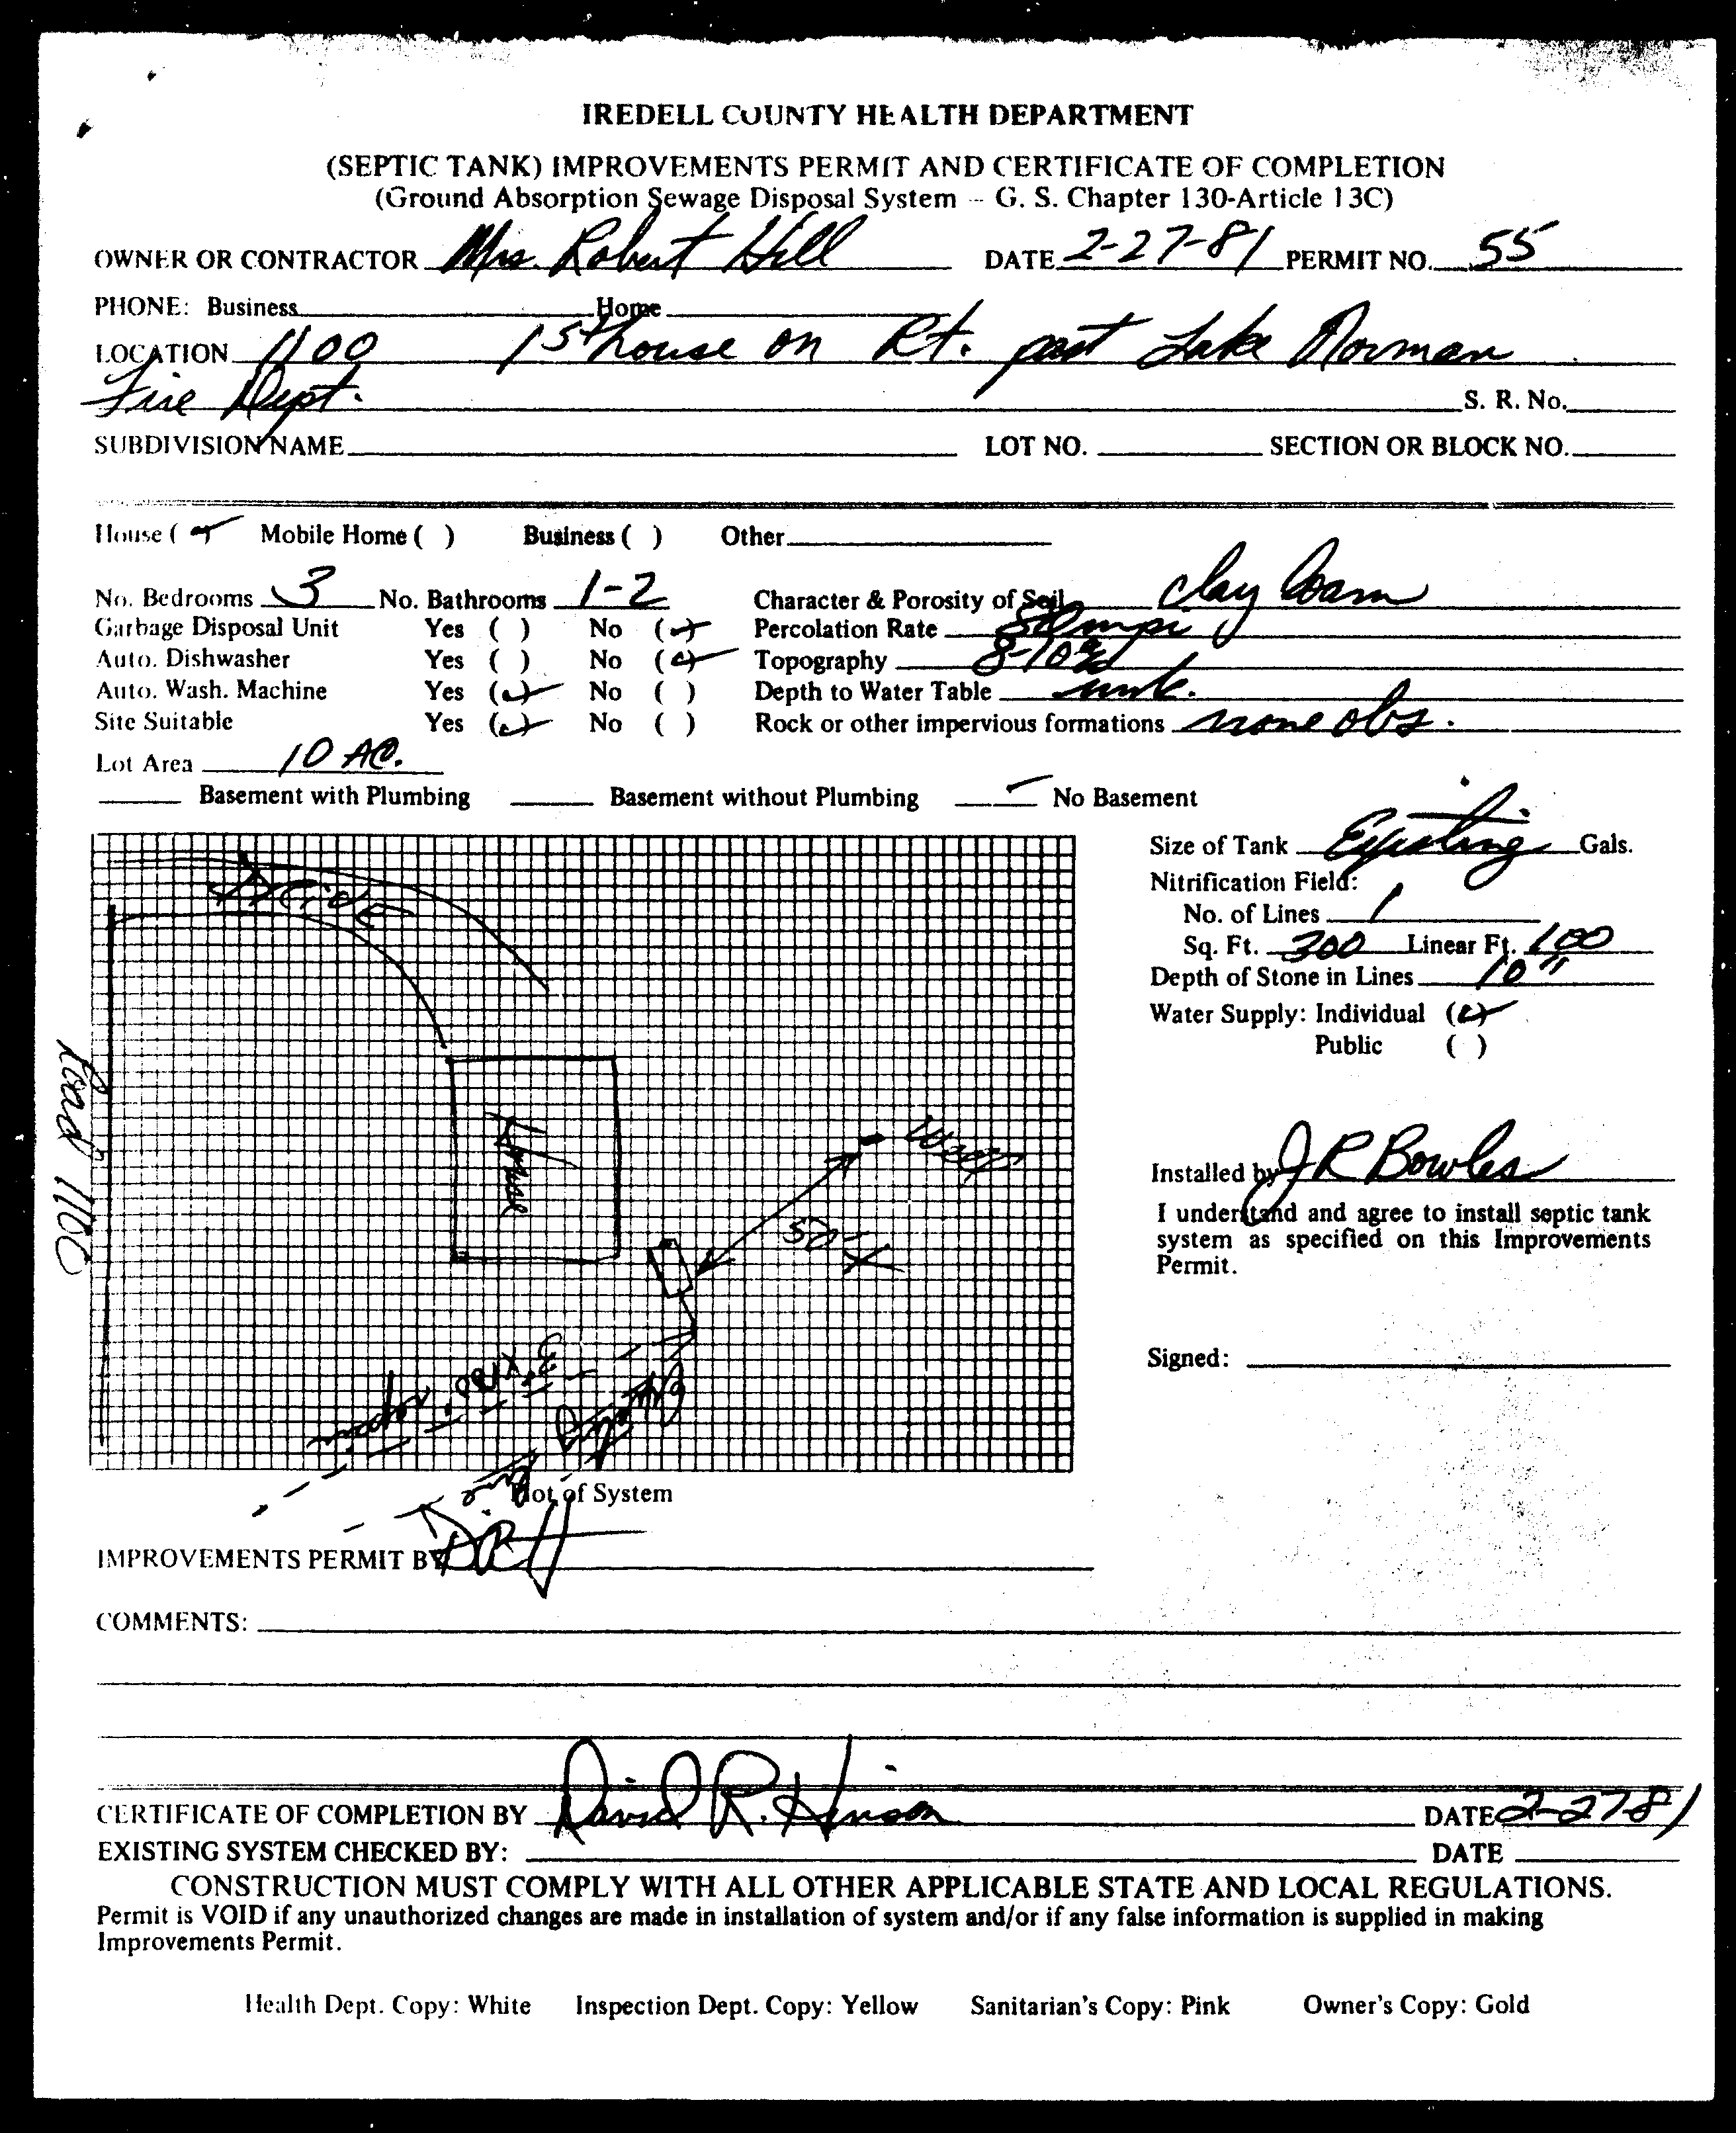 IREDELL COUNTY HEALTH DEPARTMENT
(SEPTIC TANK) IMPROVEMENTS PERMIT AND CERTIFICATE OF COMPLETION
(Ground Absorption Sewage Disposal System -- G. S. Chapter 130-Article 13C)
OWNER OR CONTRACTOR Mrs. Robert Hill DATE 2-27-81 PERMIT NO. 55
PHONE: Business Home
LOCATION 1100 1st house on Rt. past Lake Norman
Fire Dept. S. R. No.
SUBDIVISION NAME LOT NO. SECTION OR BLOCK NO.
House (✓) Mobile Home ( ) Business ( ) Other
No. Bedrooms 3 No. Bathrooms 1-2 Character & Porosity of Soil clay loam
Garbage Disposal Unit Yes ( ) No (✓) Percolation Rate 50 mpi
Auto. Dishwasher Yes ( ) No (✓) Topography 8-10%
Auto. Wash. Machine Yes (✓) No ( ) Depth to Water Table unk.
Site Suitable Yes (✓) No ( ) Rock or other impervious formations none obs.
Lot Area 10 AC.
Basement with Plumbing Basement without Plumbing ✓ No Basement
Size of Tank Existing Gals.
Nitrification Field:
No. of Lines 1
Sq. Ft. 300 Linear Ft. 100
Depth of Stone in Lines 10"
Water Supply: Individual (✓)
Public ( )
Drive
Road 1100
House
Well
50'
3'x100'
Existing
Line
Installed by J R Bowles
I understand and agree to install septic tank
system as specified on this Improvements
Permit.
Signed:
Plot of System
IMPROVEMENTS PERMIT BY DRH
COMMENTS:
CERTIFICATE OF COMPLETION BY David R. Hinson DATE 2-27-81
EXISTING SYSTEM CHECKED BY: DATE
CONSTRUCTION MUST COMPLY WITH ALL OTHER APPLICABLE STATE AND LOCAL REGULATIONS.
Permit is VOID if any unauthorized changes are made in installation of system and/or if any false information is supplied in making
Improvements Permit.
Health Dept. Copy: White Inspection Dept. Copy: Yellow Sanitarian's Copy: Pink Owner's Copy: Gold